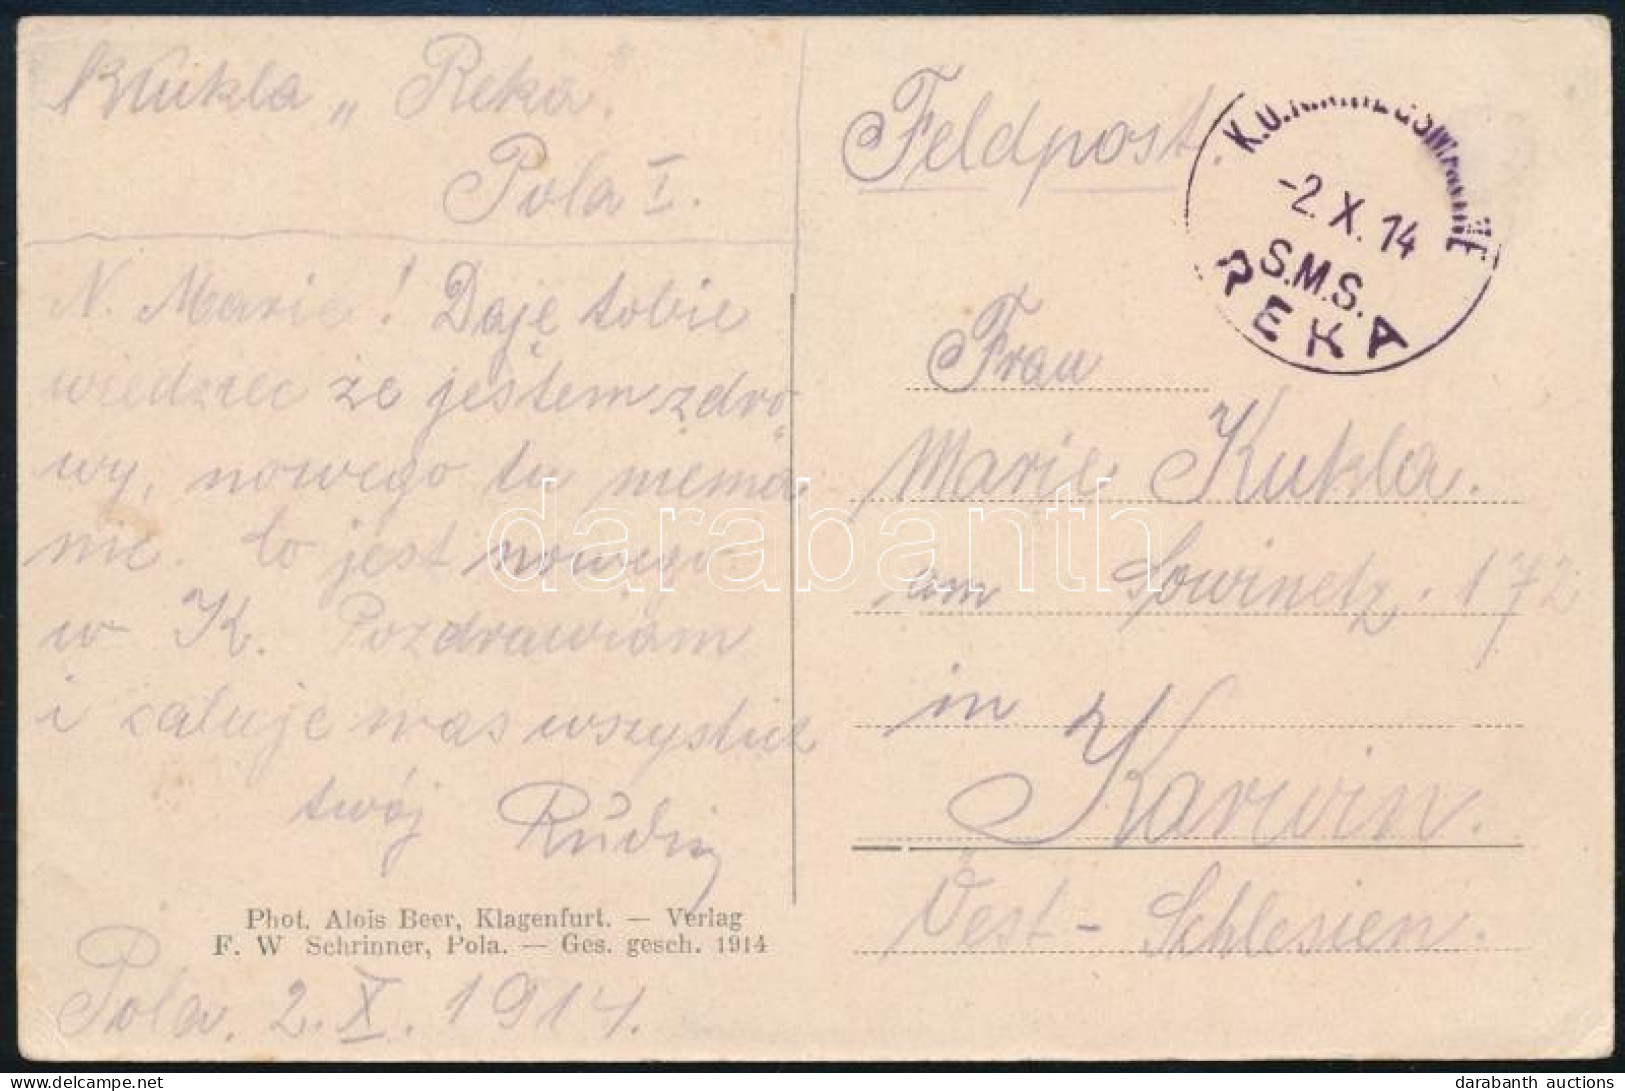 Kukla „Reka"
Pola I.
N. Marie! Daję tobie
wiedziec że jestem zdro-
wy, nowego tu niema
nic. Co jest nowego
w K. Pozdrawiam
i całuje was wszystkich
twój Rudi
Phot. Alois Beer, Klagenfurt. — Verlag
F. W Schrinner, Pola. — Ges. gesch. 1914
Pola. 2.X.1914.
Feldpost.
K.U.K. KRIEGSMARINE
-2.X.14
S.M.S.
REKA
Frau
Marie Kukla.
am Sowinetz. 172
in
Karwin.
Oest-Schlesien.
darabanth
darabanth auctions